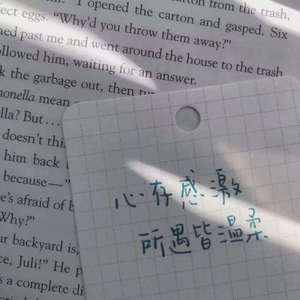 from the trash,
I opened the carton and gasped. Six
ect eggs. “Why’d you throw them away?”
hed past me and went around the house to the trash
ollowed him, waiting for an answer.
k the garbage out, then tu
monella mean
lla? But . . .
doesn’t thi
him back
because—“
e’s afraid of b
Why?”
ur backyard is,
ce, Juli!” He p
s a complete di
心存感激
所遇皆溫柔